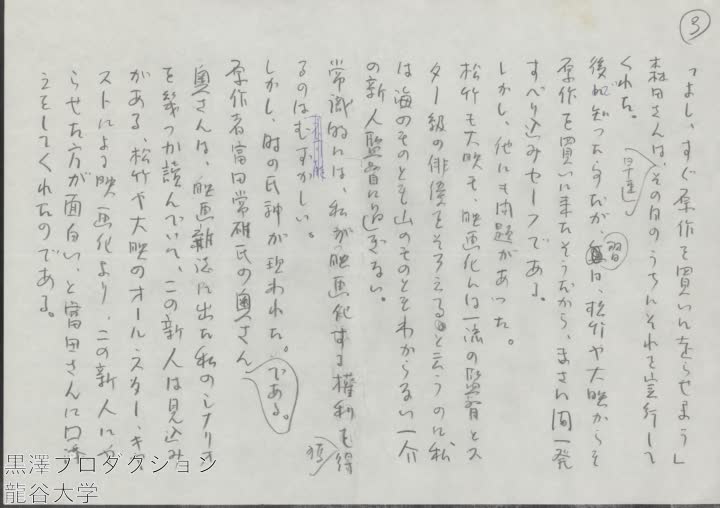 3
「よし、すぐ原作を買いに走らせよう」
森田さんは、その日のうちにそれを実行して
早速
くれた。
後で知った事だが、翌日は、松竹や大映からそ
原作を買いに来たそうだから、まさに間一発
すべり込みセーフである。
しかし、他にも問題があった。
松竹も大映も、映画化には一流の監督とス
ター級の俳優をそろえると云うのに私
は海のものとも山のものともわからない一介
の新人監督に過ぎない。
常識的には、私が映画化する権利を得
るのはむずかしい。
しかし、時の氏神が現われた。である。
原作者富田常雄氏の奥さん
奥さんは、映画雑誌に出た私のシナリオ
を幾つか読んでいて、この新人は見込み
がある、松竹や大映のオール・スター・キャ
ストによる映画化より、この新人にや
らせた方が面白い、と富田さんに口添
えをしてくれたのである。
黒澤プロダクション
龍谷大学